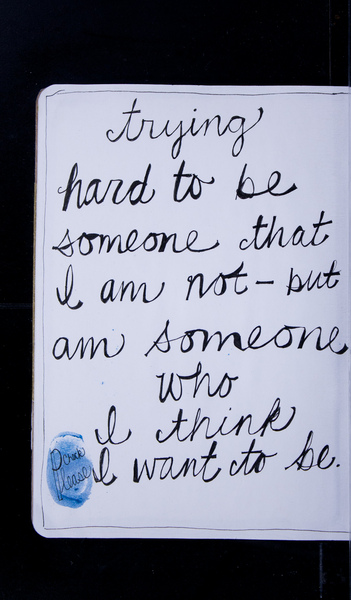 trying
hard to be
someone that
I am not - but
am someone
who
I think
I want to be.
please